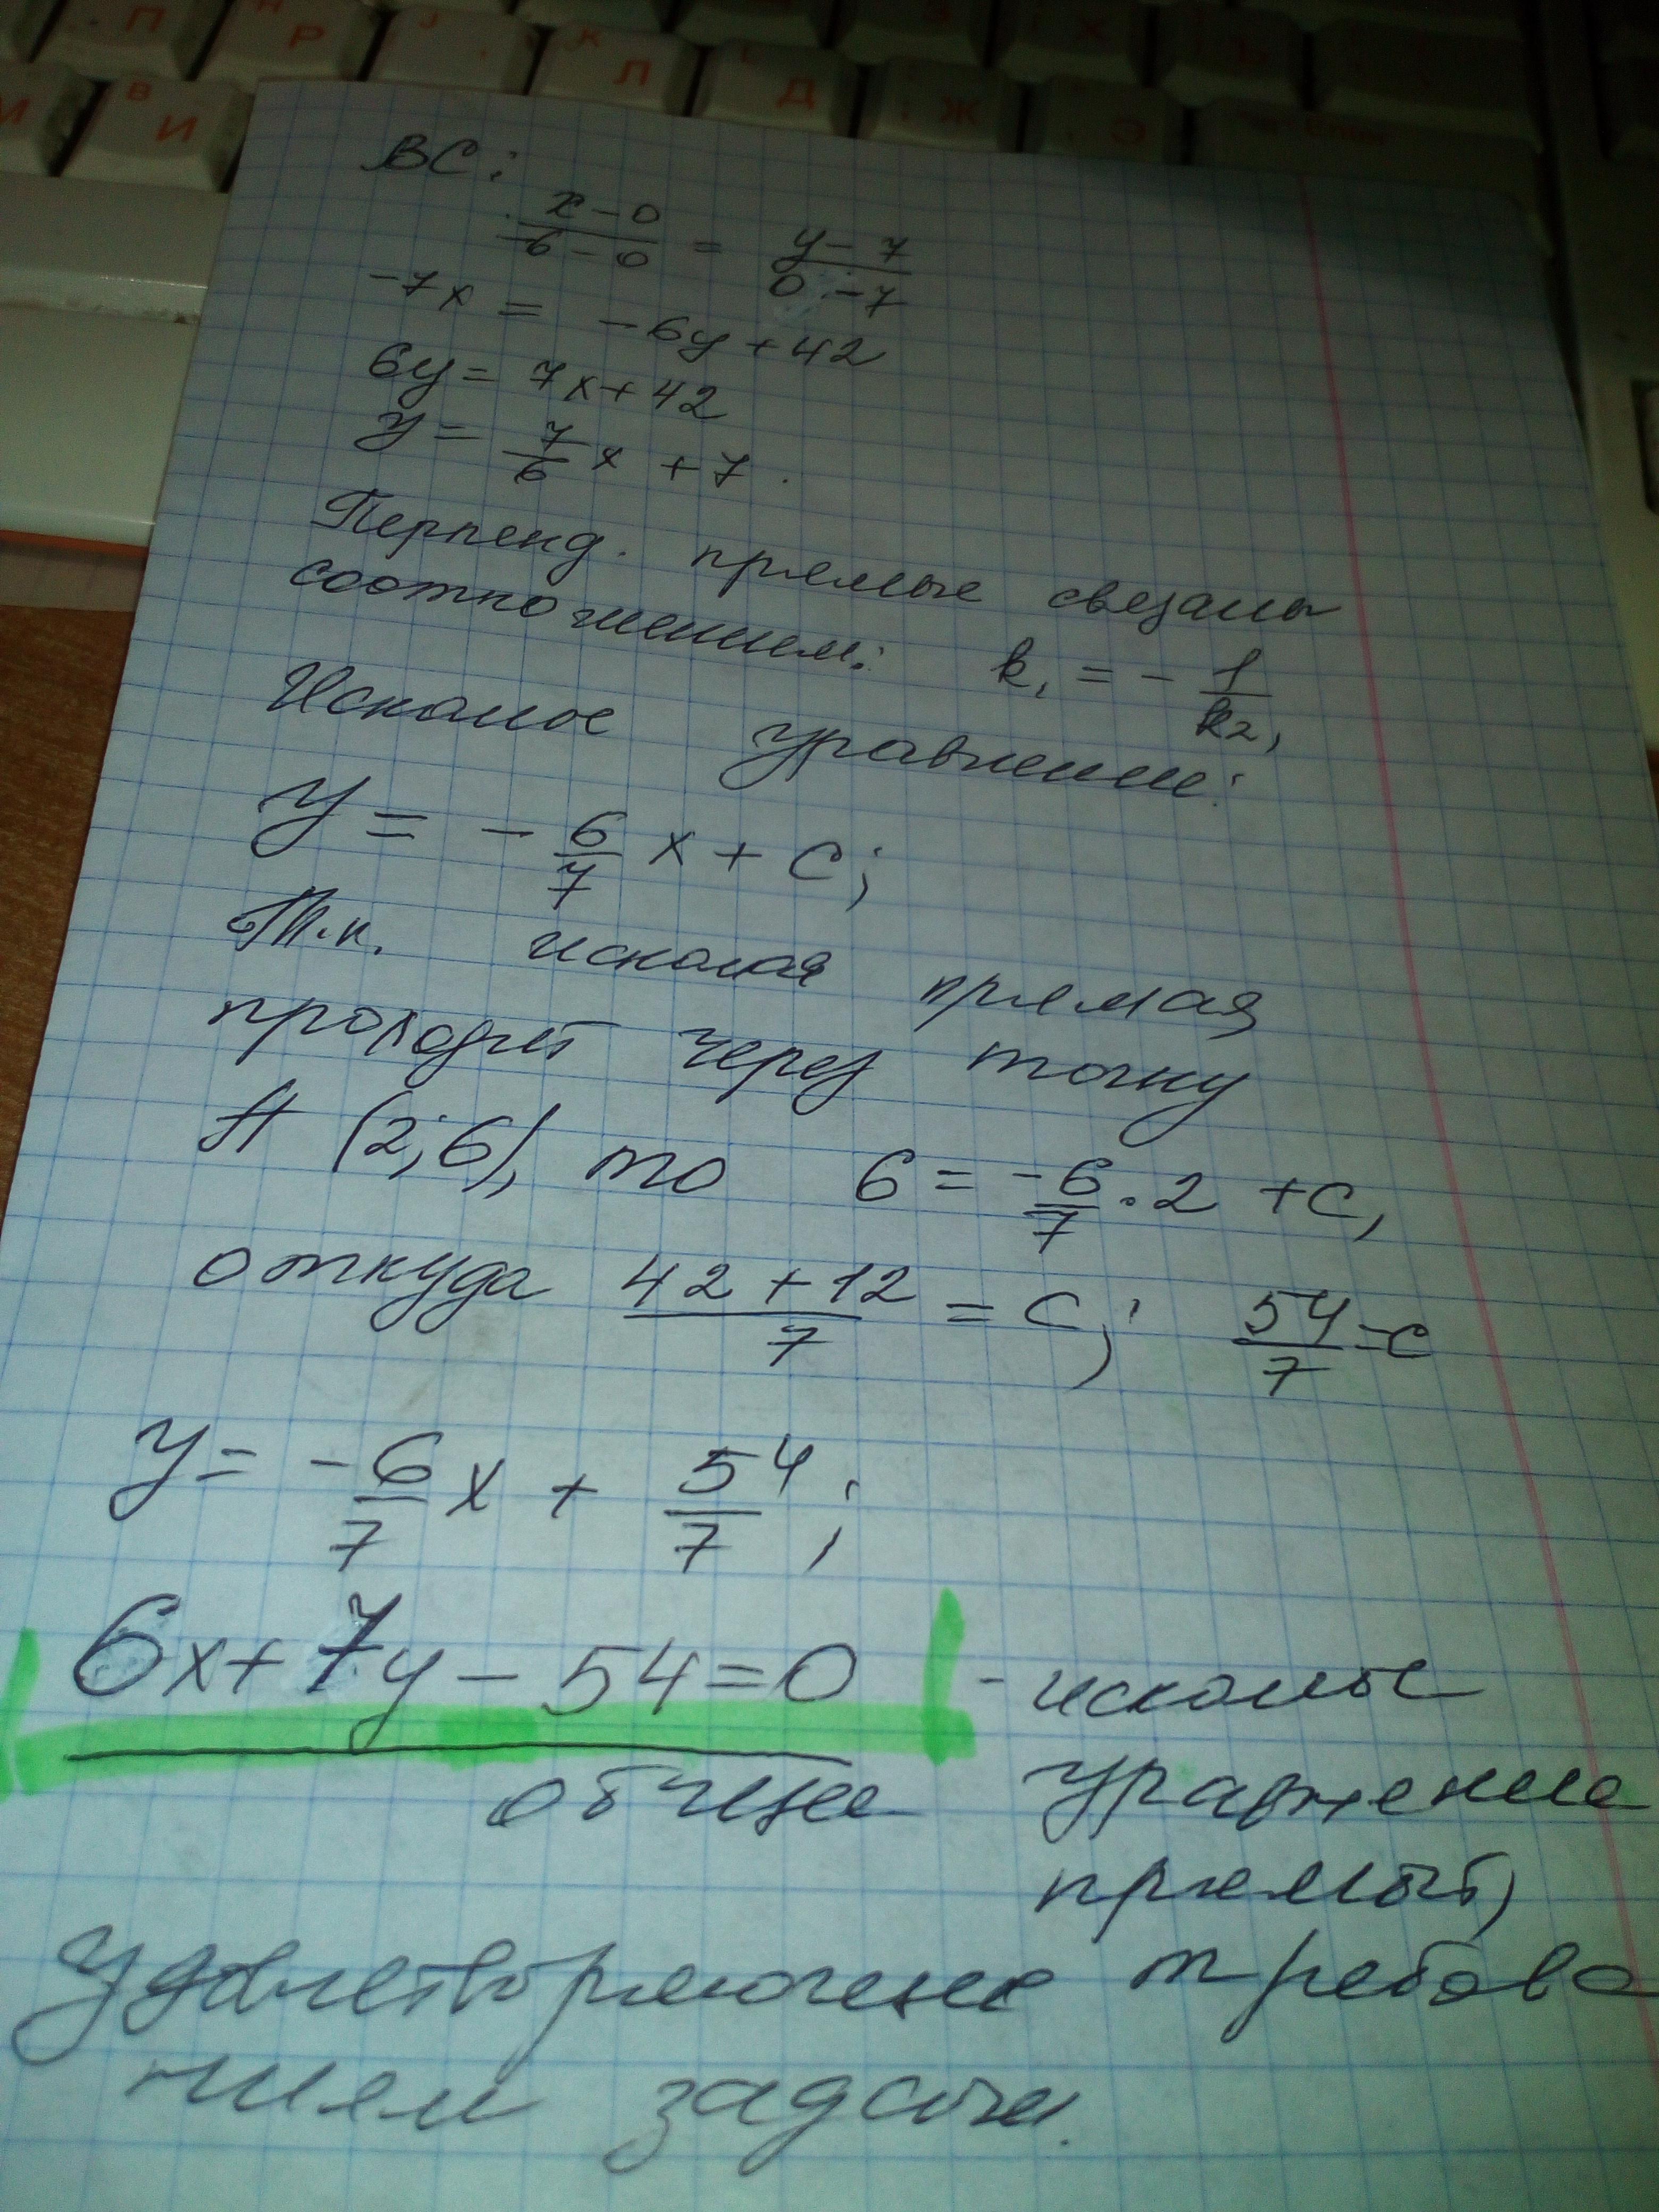 П Р Л Д Ж Э
И
BC:
\frac{x-0}{-6-0} = \frac{y-7}{0-7}
-7x = -6y+42
6y = 7x+42
y = \frac{7}{6}x + 7.
Перпенд. прямые связаны
соотношением: k₁ = -\frac{1}{k₂},
Искомое уравнение:
y = -\frac{6}{7}x + c;
Т.к. искомая прямая
проходит через точку
A (2;6), то 6 = \frac{-6}{7}·2 + c,
откуда \frac{42+12}{7} = c; \frac{54}{7} = c
y = \frac{-6}{7}x + \frac{54}{7};
6x+7y-54=0 - искомое
общее уравнение
прямой,
удовлетворяющее требова
ниям задачи.